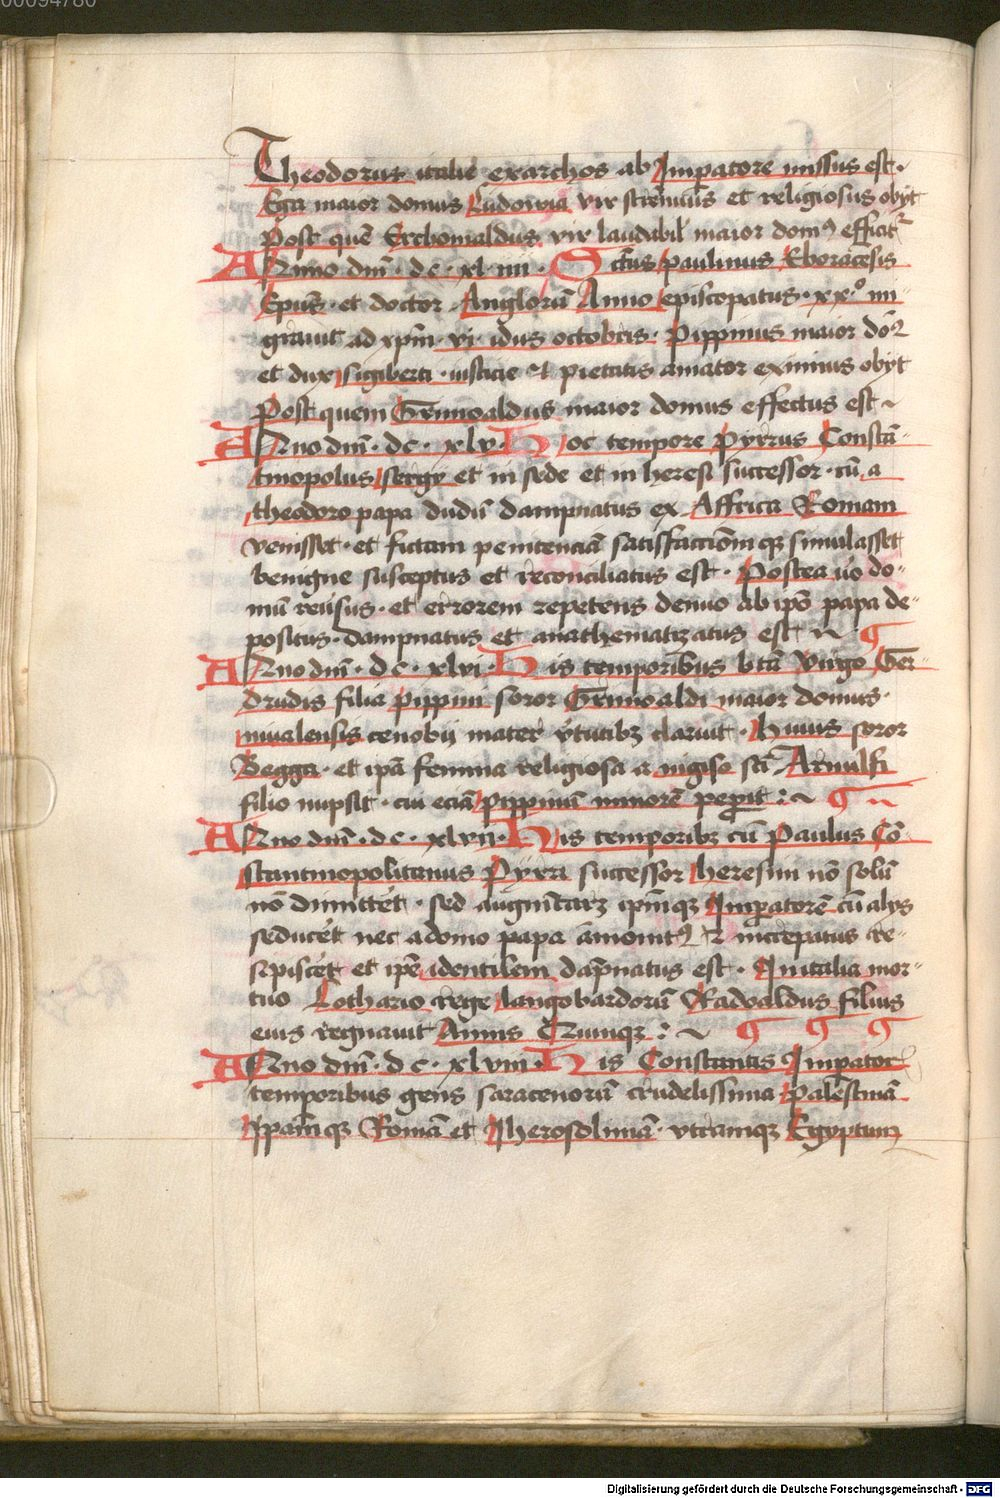 00094780
Theodorus italie exarchos ab Impatore missus est ·
Ega maior domus Ludowia vir strēnuus et religiosus obyt
Post quē Erchonaldus vir laudabil' maior domꝰ efficit᷑
Anno dm̄ · dc · xl · iiii · Sctūs paulinus Eboracēsis
Epūs · et doctor Anglorū Anno episcopatus · xx · º mi
grauit ad xp̄m · vi · idus octobris · Pippinus maior dōꝰ
et dux sigiberti · iusticie et pietatis amator eximius obyt
Post quem Grimoaldus maior domus effectus est ~
Anno dm̄ · dc · xlv · Hoc tempore Pyrrus Constā-
tinopolus sergy et in sede et in heresi successor · cū a
theodoro papa dudū dampnatus ex Affrica Romam
venisset · et fictam penitenciā satisfactiōm qꝫ simulasset
benigne susceptus et reconciliatus est · Postea ūo do-
mū reūsus · et errorem repetens denuo ab ipō papa de-
positus · dampnatus et anathematizatus est ~ ¶
Anno dm̄ · dc · xlvi · His temporibus btā Virgo Ger-
drudis filia pippini soror Grimoaldi maior domus ·
niualensis cenobij mater v̄tutibꝫ claruit · Huius soror
Begga · et ipā femina religiosa a nigiso sctī Arnulfi
filio nupsit · cui eciā pippinū minorē peperit : ~ ¶ ~
Anno dm̄ · dc · xlvii · His temporibꝫ cū Paulus Cō-
stantinopolitanus Pyrri successor heresim nō solū
nō dimittēt · sed augmētarꝫ ipm̄qꝫ Imperatorē cū alys
seducēt nec adomo papa āmonitꝰ et increpatus re-
sipiscēt et ipē identilem dāpnatus est · In italia mor-
tuo Lothario rege langobardorū Radoaldus filius
eius regnauit Annis Quinqꝫ : ~ ¶ ¶ ¶
Anno dm̄ · dc · xlviii · His Constantis Imperator
temporibus gens saracenorū crudelissima palestinā
Ipām qꝫ Romā et Iherosolimā · vtramqꝫ Egyptum
Digitalisierung gefördert durch die Deutsche Forschungsgemeinschaft - DFG